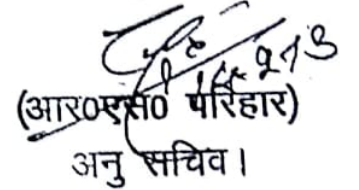 (आर०एस० परिहार)
अनु सचिव।